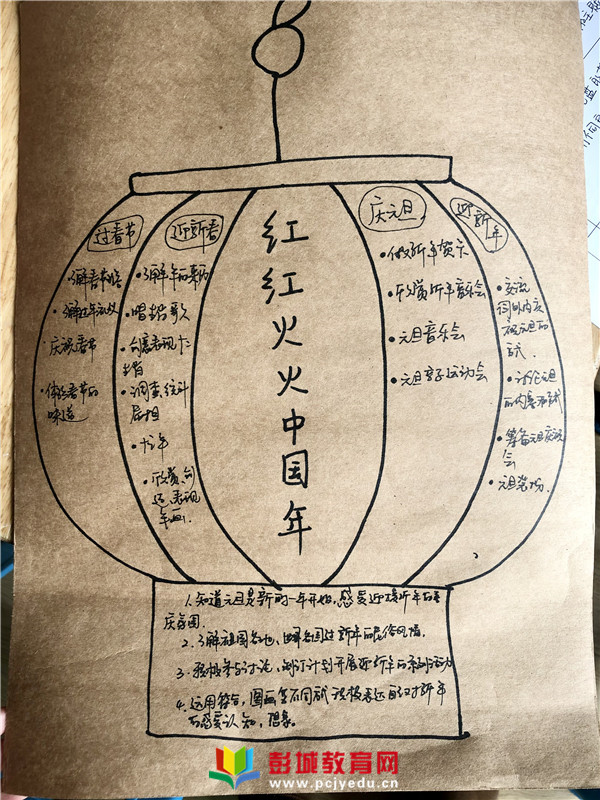 过春节
了解春节
了解过年
庆祝春节
体验春节的
味道
迎新春
了解年的来历
唱
十二
生肖
调查、统计
属相
年
欣赏、
表现
年画
红红火火中国年
庆元旦
做新年贺卡
欣赏新年音乐会
元旦音乐会
元旦亲子运动会
迎新年
交流
国内外庆
祝元旦的
形式
讨论元旦
的内容和形式
筹备元旦庆祝
会
元旦
1. 知道元旦是新的一年开始，感受迎接新年的喜
庆氛围。
2. 了解祖国各地、世界各国过新年的民俗风情。
3. 积极参与讨论、制订计划开展迎新年的系列活动
4. 运用符号，图画等不同形式积极表达自己对新年
的感受认知，想象。
彭城教育网
www.pcjyedu.cn